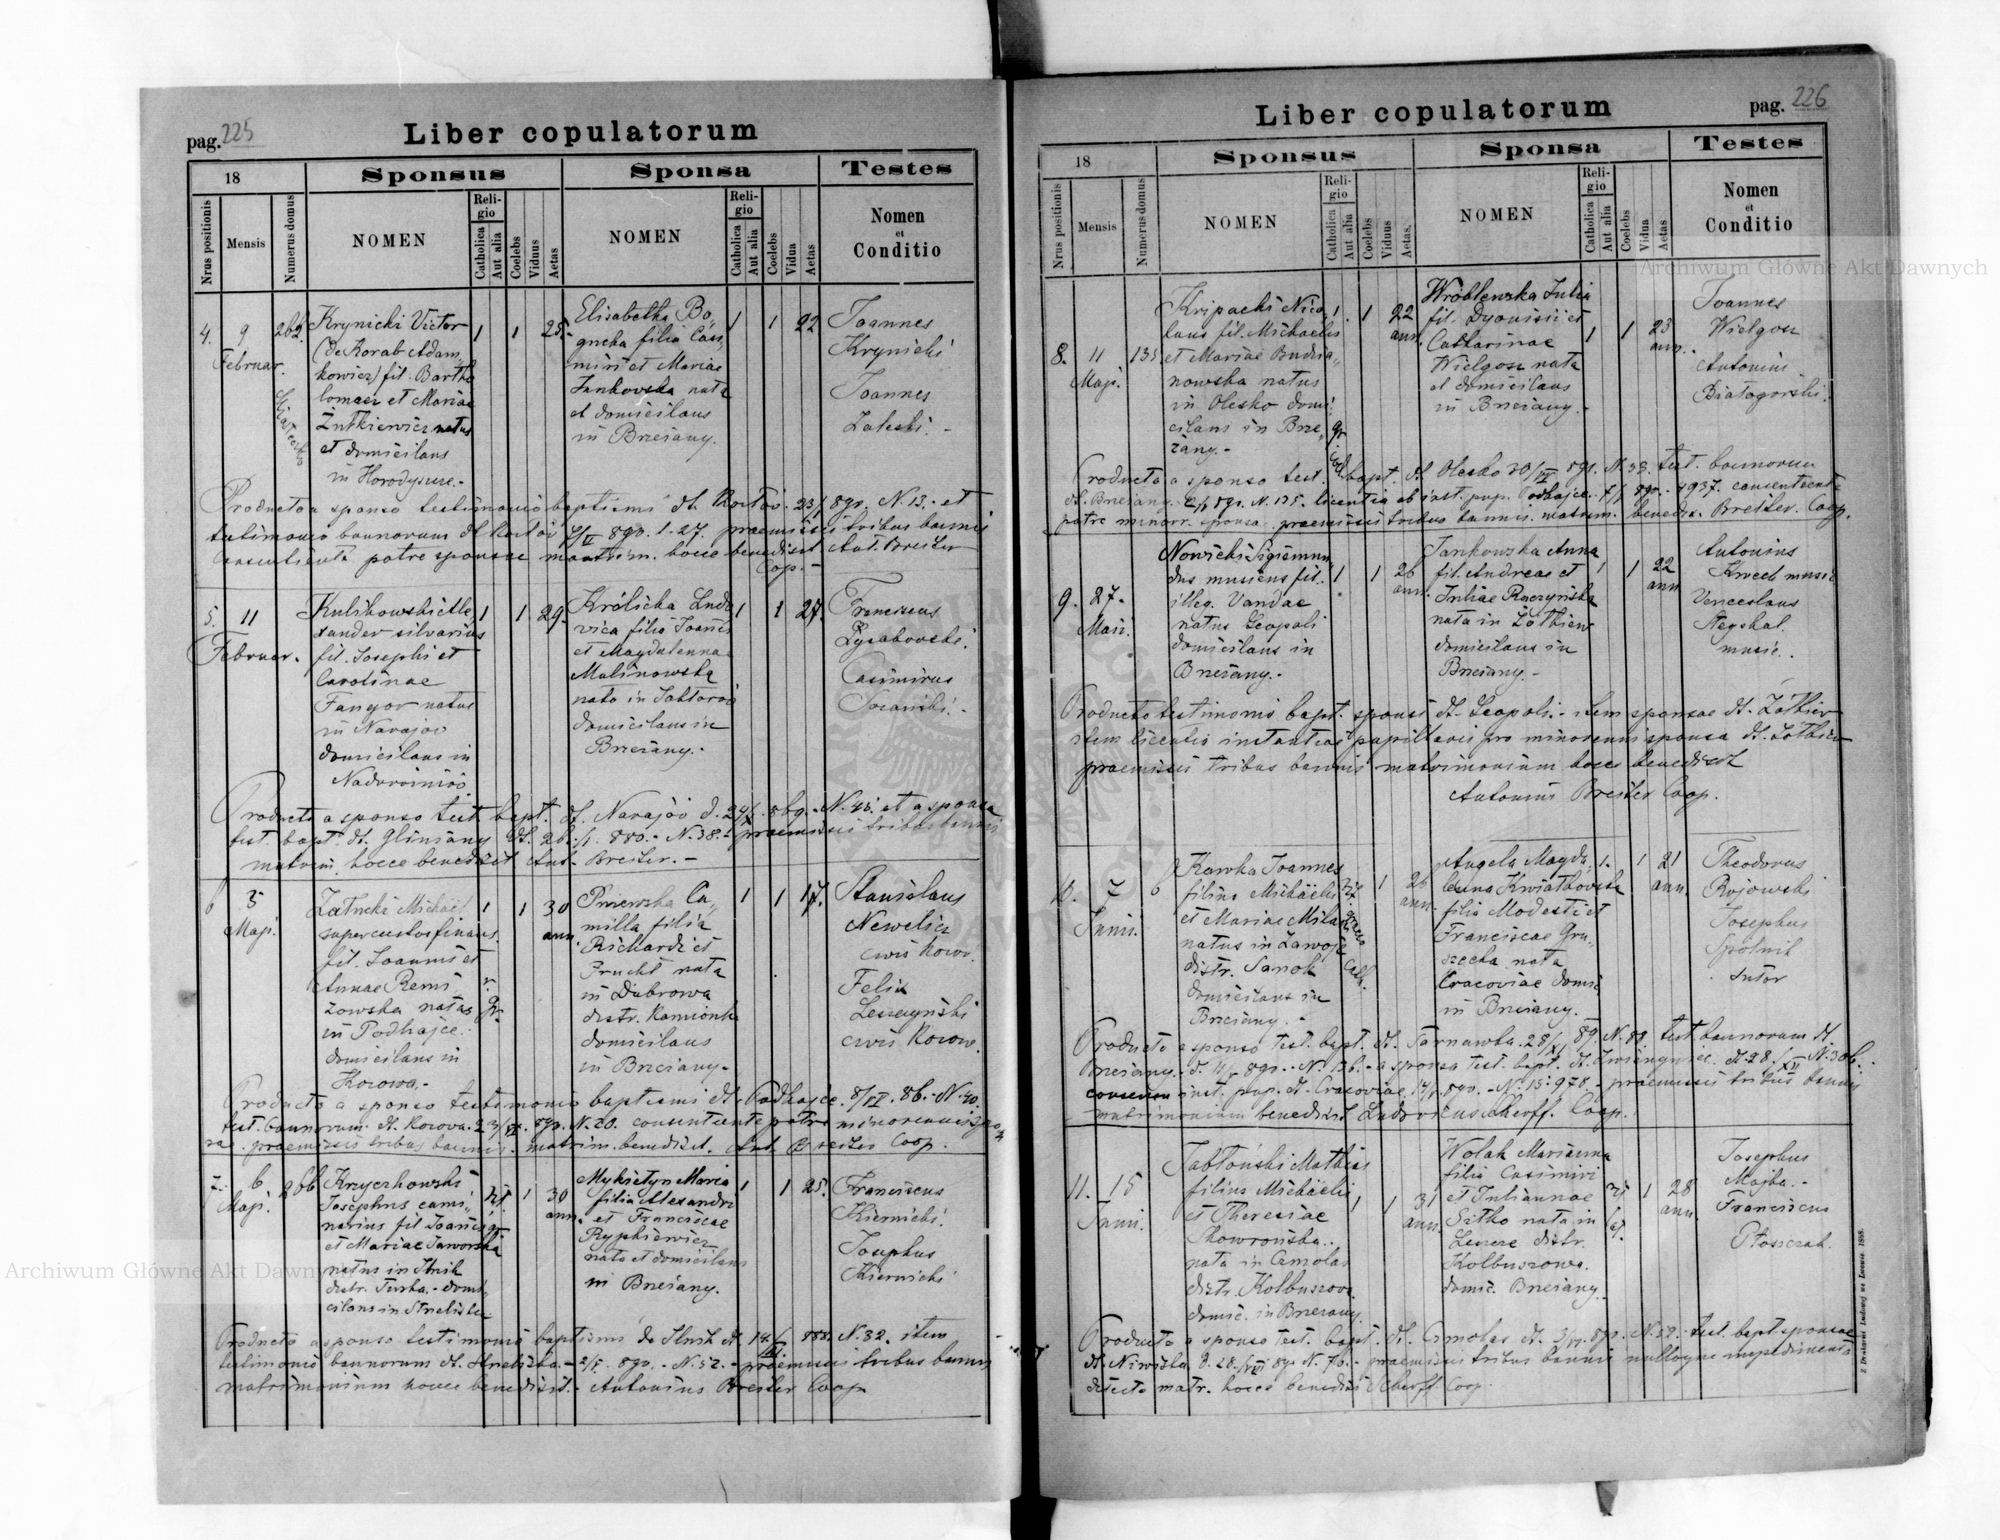 pag. 225
Liber copulatorum
18
Sponsus
Sponsa
Testes
Nrus positionis
Mensis
Numerus domus
NOMEN
Religio
Catholica
Aut alia
Coelebs
Viduus
Aetas
NOMEN
Religio
Catholica
Aut alia
Coelebs
Vidua
Aetas
Nomen
et
Conditio
4. 9
Februar.
Krynicki Victor
(de Korab Adam
kowicz) fil. Bartho
lomaei et Mariae
Żutkiewicz natus
et domicilans
in Horodyszcze.-
1 1 25.
Elisabetha Bo,
gucka filia Casi,
miri et Mariae
Jankowska nata
et domicilans
in Brzeżany.
1 1 22
Joannes
Krynicki
Joannes
Zaleski. -
Producto a sponso testimonio baptismi dt. 890. N. 13. et
testimonio bannorum dt. 890. l. 27. praemissis tribus bannis
consentiente patre sponsae matrim. hocce benedixit Ant. Breiter
Coop. -
5. 11
Februar.
Kulikowski Ale
xander silvarius
fil. Josephi et
Carolinae
Fangor natus
in Narajów
domicilans in
1 1 29.
Królicka Ludo
vica filia Joannis
et Magdalenae
Malinowska
nata in
domicilans in
Brzeżany.
1 1 27.
Franciscus
Casimirus
Producto a sponso test. bapt. dt. Narajów d. N. 45. et a sponsa
test. bapt. dt. Gliniany dt. 26. 880. - N. 38. - praemissis tribus bannis
matrim. hocce benedixit Ant. Breiter. -
6 5
Maji.
Załucki Michael
supercustos finans.
fil. Joannis et
Annae Remi
zowska natus
in Podhajce.
domicilans in
Kozowa. -
1 1 30
ann.
r.
gr.
Pniewska Ca,
milla filia
Richardi et
Prucht nata
in Dubrowa
distr. Kamionka
domicilans
in Brzeżany. -
1 1 17.
Stanislaus
Newelicz
Felix
Leszczyński
Producto a sponso testimonio baptismi dt. Podhajce. N. 40.
test. bannorum dt. Kozowa. 890. N. 20. consentiente patre minorennis spon
sae. praemissis tribus bannis. matrim. benedixit. Ant. Breiter Coop.
7. 6
Maji.
266
Krzyczkowski
Josephus cami,
narius fil. Joannis
et Mariae Jaworska
natus in Ilnik
distr. Turka. - domi,
cilans in Strzeliska.
rit.
gr.
1 30
ann.
Mykietyn Maria
filia Alexandri
et Franciscae
Rypkiewicz
nata et domicilans
in Brzeżany.
1 1 25.
Franciscus
Kiernicki.
Josephus
Kiernicki
Producto a sponso testimonio baptismi de Ilnik dt. N. 32. item
testimonio bannorum dt. Strzeliska. - 890. - N. 52. - praemissis tribus bannis
matrimonium hocce benedixit. - Antonius Breiter Coop.
pag. 226
Liber copulatorum
18
Sponsus
Sponsa
Testes
Nrus positionis
Mensis
Numerus domus
NOMEN
Religio
Catholica
Aut alia
Coelebs
Viduus
Aetas.
NOMEN
Religio
Catholica
Aut alia
Coelebs
Vidua
Aetas
Nomen
et
Conditio
8. 11
Maji.
135
Kripacki Nico
laus fil. Michaelis
et Mariae Budzia,,
nowska natus
in Olesko domi,
cilans in Brze,
żany. -
1. 1 22
ann.
gr.
Wróblewska Julia
fil. Dyonisii et
Catharinae
Wielgosz nata
et domicilans
in Brzeżany. -
1 1 23
ann.
Joannes
Wielgosz
Antonius
Białogórski.
Producto a sponso test. bapt. dt. Olesko N. 38. test. bannorum
dt. Brzeżany. 890. N. 135. licentia ab inst. pup. Podhajce. 4937. consentiente
patre minorr. sponsa praemissis tribus bannis. matrim. benedix. Breiter. Coop.
9. 27.
Maii.
Nowicki Sigismun
dus musicus fil.
illeg. Vandae
natus Leopoli
domicilans in
Brzeżany. -
1 1 26
ann.
Jankowska Anna
fil. Andreae et
Juliae Raczyńska
nata in Żółkiew
domicilans in
Brzeżany. -
1 1 22
ann
Antonius
Venceslaus
music.
Producto testimonio bapt. sponsi dt. Leopoli. - item sponsae dt. Żółkiew
item licentia instantiae pupillaris pro minorenni sponsa dt. Żółkiew
praemissis tribus bannis matrimonium hocce benedixit
Antonius Breiter Coop.
10. 7
Junii.
6
Kawka Joannes
filius Michaelis
et Mariae Milan
natus in Zawoje
distr. Sanok
domicilans in
Brzeżany. -
rit.
graeco
cath.
1 26
ann.
Angela Magda,
lena Kwiatkowska
filia Modesti et
Franciscae Gru,
szecka nata
Cracoviae domic.
in Brzeżany.
1. 1 21
ann.
Theodorus
Rojowski
Josephus
Spólnik
sutor
Producto a sponso test. bapt. dt. Tarnawka. N. 88. test. bannorum dt.
Brzeżany. - 890. - N. 136. - a sponsa test. bapt. dt. N. 306.
consensu inst. pup. dt. Cracoviae 890. - N. 15.978. - praemissis tribus bannis
matrimonium benedixit Ludovicus Scherff. Coop.
11. 15
Junii.
Jabłoński Mathias
filius Michaelis
et Theresiae
Skowrońska..
nata in Cmolas
distr. Kolbuszowa.
domic. in Brzeżany
1 1 31
ann.
Wolak Marianna
filia Casimiri
et Juliannae
Sitko nata in
distr.
Kolbuszowa.
domic. Brzeżany.
1 28
ann.
Josephus
Majba. -
Franciscus
Producto a sponso test. bapt. dt. Cmolas dt. 890. N. 52. test. bapt. sponsae
dt. Niwiska N. 76. - praemissis tribus bannis nulloque impedimento
detecto matr. hocce benedixit Scherff Coop.
Z Drukarni Ludowej we Lwowie. 1888.
Archiwum Główne Akt Dawnych
Archiwum Główne Akt Dawnych